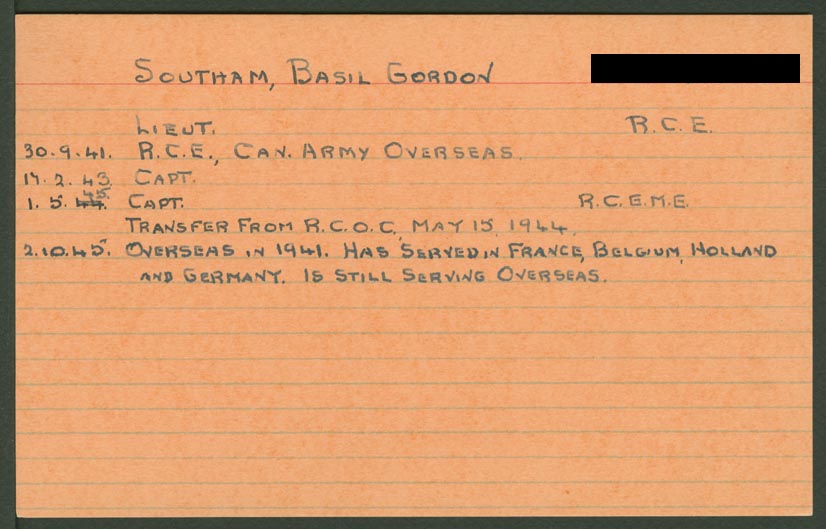 SOUTHAM, BASIL GORDON
LIEUT. R.C.E.
30.9.41. R.C.E., CAN. ARMY OVERSEAS.
17.2.43 CAPT.
1.5.45 CAPT. R.C.E.M.E.
TRANSFER FROM R.C.O.C, MAY 15, 1944.
2.10.45. OVERSEAS IN 1941. HAS SERVED IN FRANCE, BELGIUM, HOLLAND
AND GERMANY. IS STILL SERVING OVERSEAS.